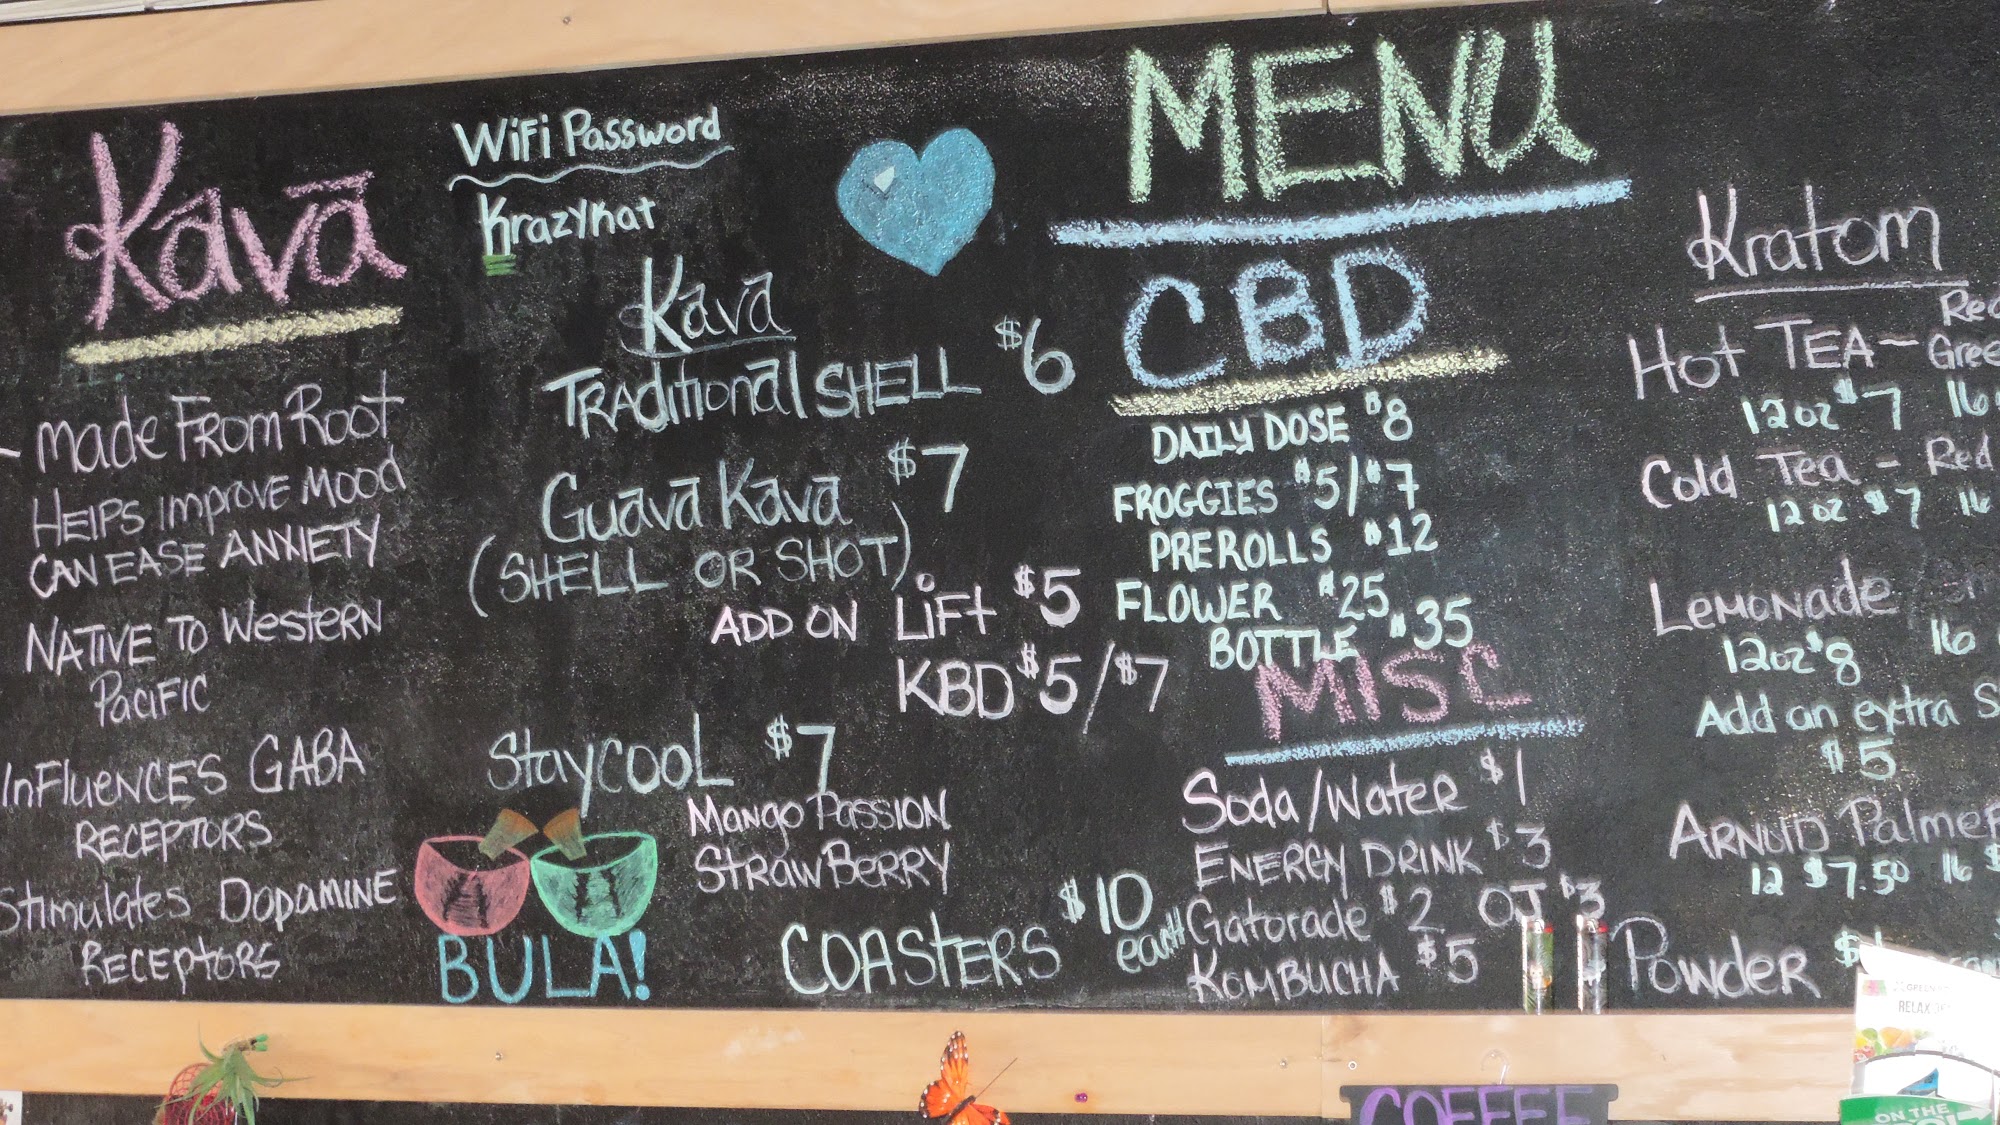 Kava
- Made From Root
Helps Improve Mood
Can Ease Anxiety
Native To Western
Pacific
Influences GABA
Receptors
Stimulates Dopamine
Receptors
WiFi Password
Krazykat
Kava
Traditional SHELL $6
Guava Kava $7
(SHELL OR SHOT)
ADD ON Lift $5
KBD $5/$7
Staycool $7
Mango Passion
Strawberry
BULA!
COASTERS $10
each
MENU
CBD
DAILY DOSE $8
FROGGIES $5/$7
PREROLLS $12
FLOWER $25
BOTTLE $35
MISC
Soda/Water $1
ENERGY DRINK $3
Gatorade $2 OJ $3
KOMBUCHA $5
Kratom
Hot TEA - Red
12oz $7 16
Cold Tea - Red
12oz $7 16
Lemonade
12oz $8 16
Add an extra
$5
Arnold Palmer
12 $7.50 16 $
Powder $
RELAX
COFFEE
ON THE